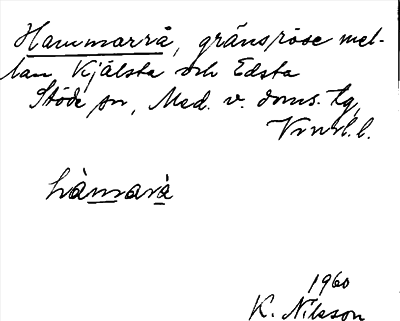 Hammarrå, gränsröse mel-
lan Kjälsta och Edsta
Stöde sn, Med. v. doms. tg,
hàmarà
1960
K. Nilsson